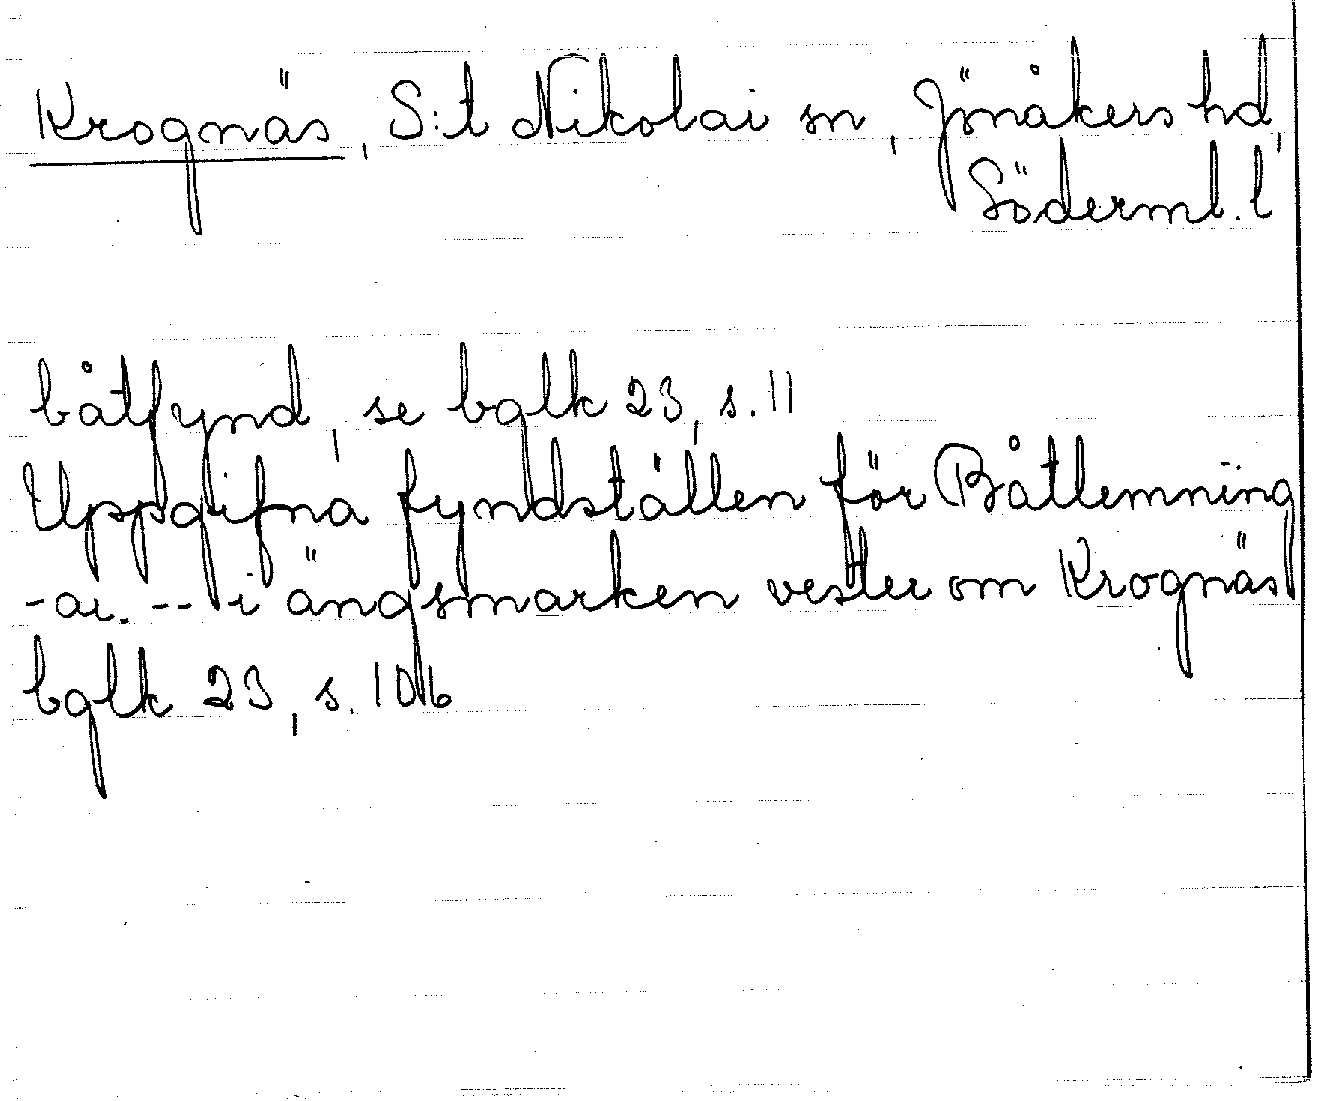 Krognäs, S:t Nikolai sn, Jönåkers hd,
Söderml. l
båtfynd, se bglk 23, s. 11
Uppgifna fyndställen för Båtlemning
-ar. -- i ängsmarken vester om Krognäs
bglk 23, s. 106